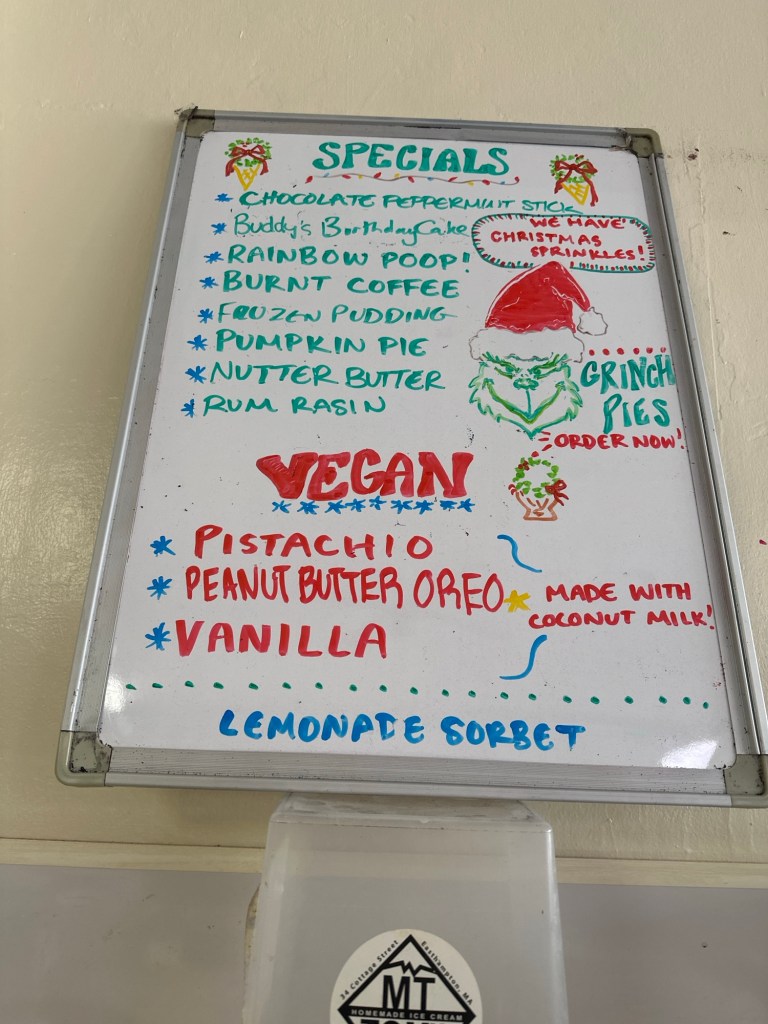 SPECIALS
* CHOCOLATE PEPPERMINT STICK
* Buddy's Birthday Cake
* RAINBOW POOP!
* BURNT COFFEE
* FROZEN PUDDING
* PUMPKIN PIE
* NUTTER BUTTER
* RUM RASIN
WE HAVE
CHRISTMAS
SPRINKLES!
GRINCH
PIES
ORDER NOW!
VEGAN
* PISTACHIO
* PEANUT BUTTER OREO
* VANILLA
* MADE WITH
COCONUT MILK!
LEMONADE SORBET
34 Cottage Street
Easthampton, MA
MT
HOMEMADE ICE CREAM